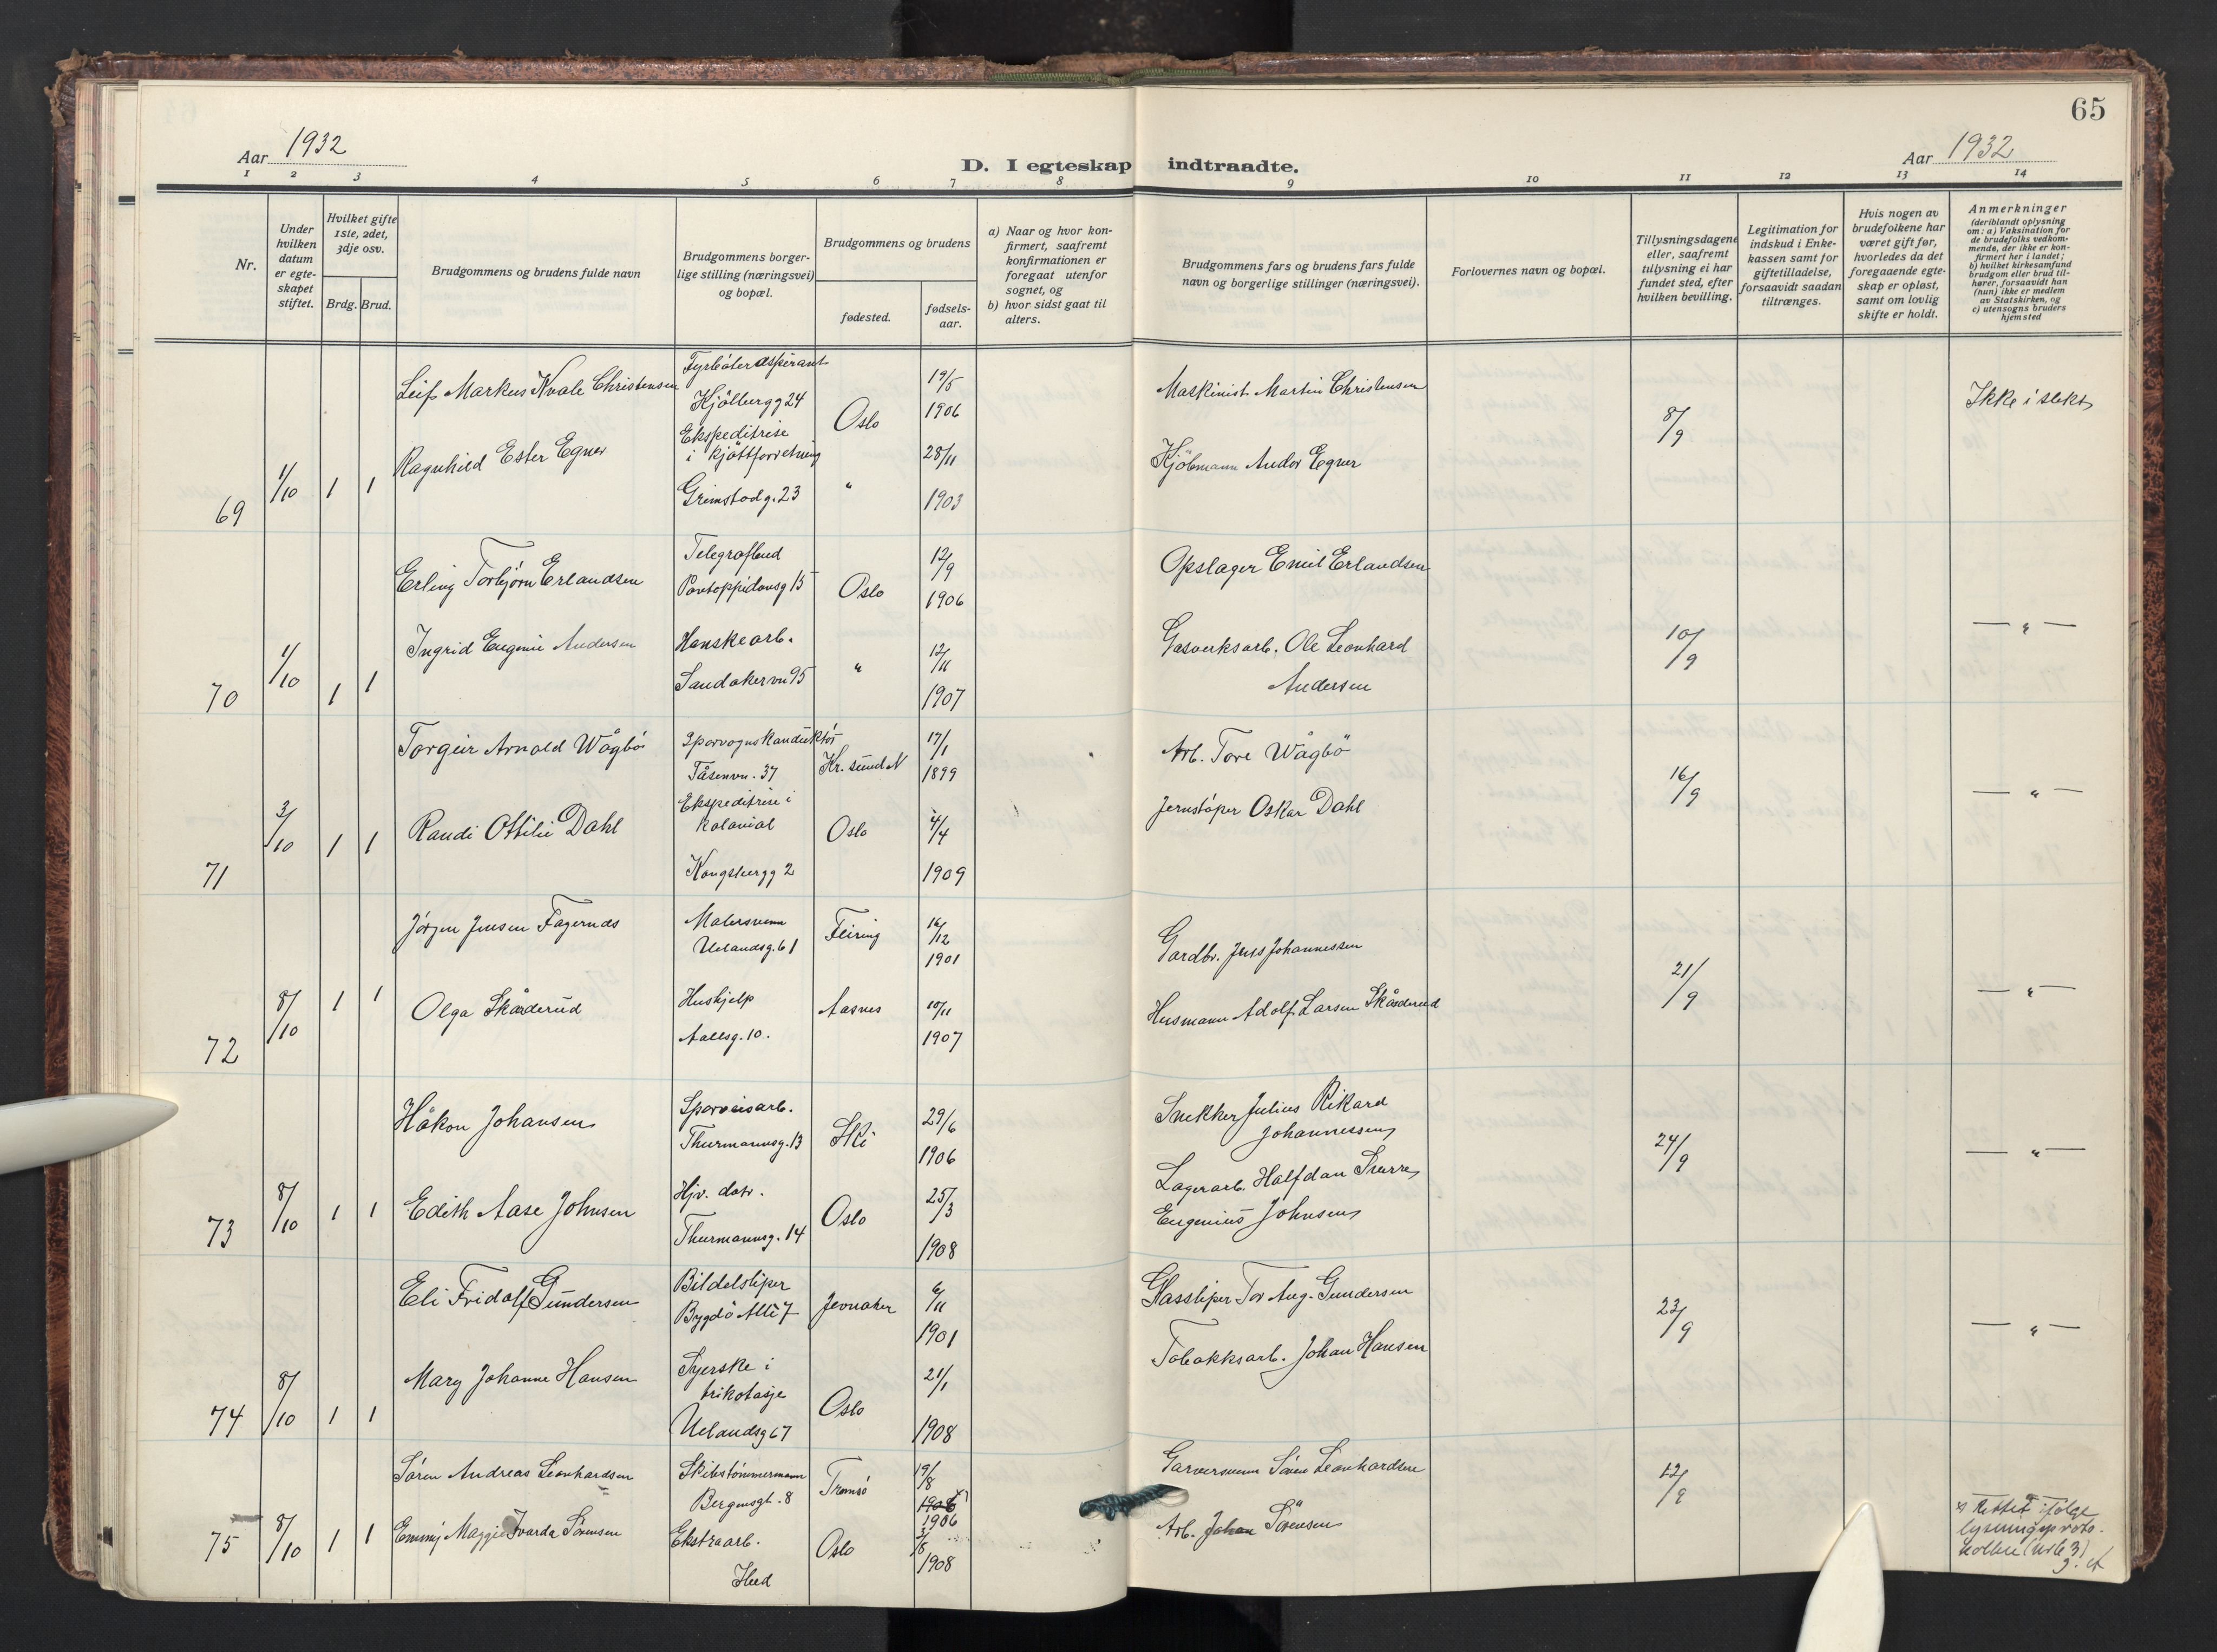 65
Aar 1932
D. I egteskap indtraadte.
Aar 1932
1 2 3 4 5 6 7 8 9 10 11 12 13 14
Nr.
Under hvilken datum er egte-skapet stiftet.
Hvilket gifte 1ste, 2det, 3dje osv.
Brdg. Brud.
Brudgommens og brudens fulde navn
Brudgommens borger-lige stilling (næringsvei) og bopæl.
Brudgommens og brudens
fødested.
fødsels-aar.
a) Naar og hvor kon-firmert, saafremt konfirmationen er foregaat utenfor sognet, og
b) hvor sidst gaat til alters.
Brudgommens fars og brudens fars fulde navn og borgerlige stillinger (næringsvei).
Forlovernes navn og bopæl.
Tillysningsdagene eller, saafremt tillysning ei har fundet sted, efter hvilken bevilling.
Legitimation for indskud i Enke-kassen samt for giftetilladelse, forsaavidt saadan tiltrænges.
Hvis nogen av brudefolkene har været gift før, hvorledes da det foregaaende egte-skap er opløst, samt om lovlig skifte er holdt.
Anmerkninger
(deriblandt oplysning om: a) Vaksination for de brudefolks vedkom-mende, der ikke er kon-firmert her i landet; b) hvilket kirkesamfund brudgom eller brud til-hører, forsaavidt han (hun) ikke er medlem av Statskirken, og c) utensogns bruders hjemsted
69 1/10 1 1
Leif Markus Kvale Christensen
Fyrbøteraspirant
Kjølbergg 24
Oslo
19/5
1906
Maskinist Martin Christensen
8/9
Ikke i slekt
Ragnhild Ester Egner
Ekspeditrise
i kjøttforretning
Grimstadg. 23
"
28/11
1903
Kjøbmann Andor Egner
70 1/10 1 1
Erling Torbjørn Erlandsen
Telegrafbud
Pontoppidansg 15
Oslo
12/9
1906
Opslager Emil Erlandsen
10/9
— " —
Ingrid Eugenie Andersen
Hanskearb.
Sandakervn 95
"
12/11
1907
Gasverksarb. Ole Leonhard
Andersen
71 3/10 1 1
Torgeir Arnold Wågbø
Sporvognskonduktør
Tåsenvn. 37
Kr. sund N
17/1
1899
Arb. Tore Wågbö
16/9
— " —
Randi Ottilie Dahl
Ekspeditrise i
kolonial
Kongsbergg 2
Oslo
4/4
1909
Jernstøper Oskar Dahl
72 8/10 1 1
Jørgen Jensen Fagernds
Malersvenn
Uelandsg. 61
Feiring
16/12
1901
Gardbr. Jens Johannessen
21/9
— " —
Olga Skårderud
Hushjelp
Aallsg. 10.
Aasnes
10/11
1907
Husmann Adolf Larsen Skårderud
73 8/10 1 1
Håkon Johansen
Sporveisarb.
Thurmannsg. 13
Ski
29/6
1906
Snekker Julius Rikard
Johannessen
24/9
— " —
Edith Aase Johnsen
Hjv. datr.
Thurmannsg. 14
Oslo
25/3
1908
Lagerarb. Halfdan Snerre
Eugenius Johnsen
74 8/10 1 1
Eli Fridolf Gundersen
Bildelsliper
Bygdø Allé 7
Jevnaker
6/11
1901
Glassliper Tor Aug. Gundersen
23/9
— " —
Mary Johanne Hansen
Syerske i
trikotasje
Uelandsg 67
Oslo
21/1
1908
Tobakksarb. Johan Hansen
75 8/10 1 1
Søren Andreas Leonhardsen
Skibstømmermann
Bergensgt. 8
Tromsø
19/8
1906
Garversvenn Søren Leonhardsen
12/9
Emmy Maggie Ivarda Sørensen
Ekstraarb.
Oslo
1908
Arb. Johan Sörensen
x) Rettet ifølge
lysningsproto-
kollen